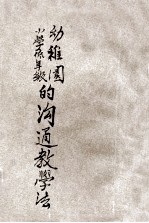 幼稚園
小學低年級
的溝通教學法